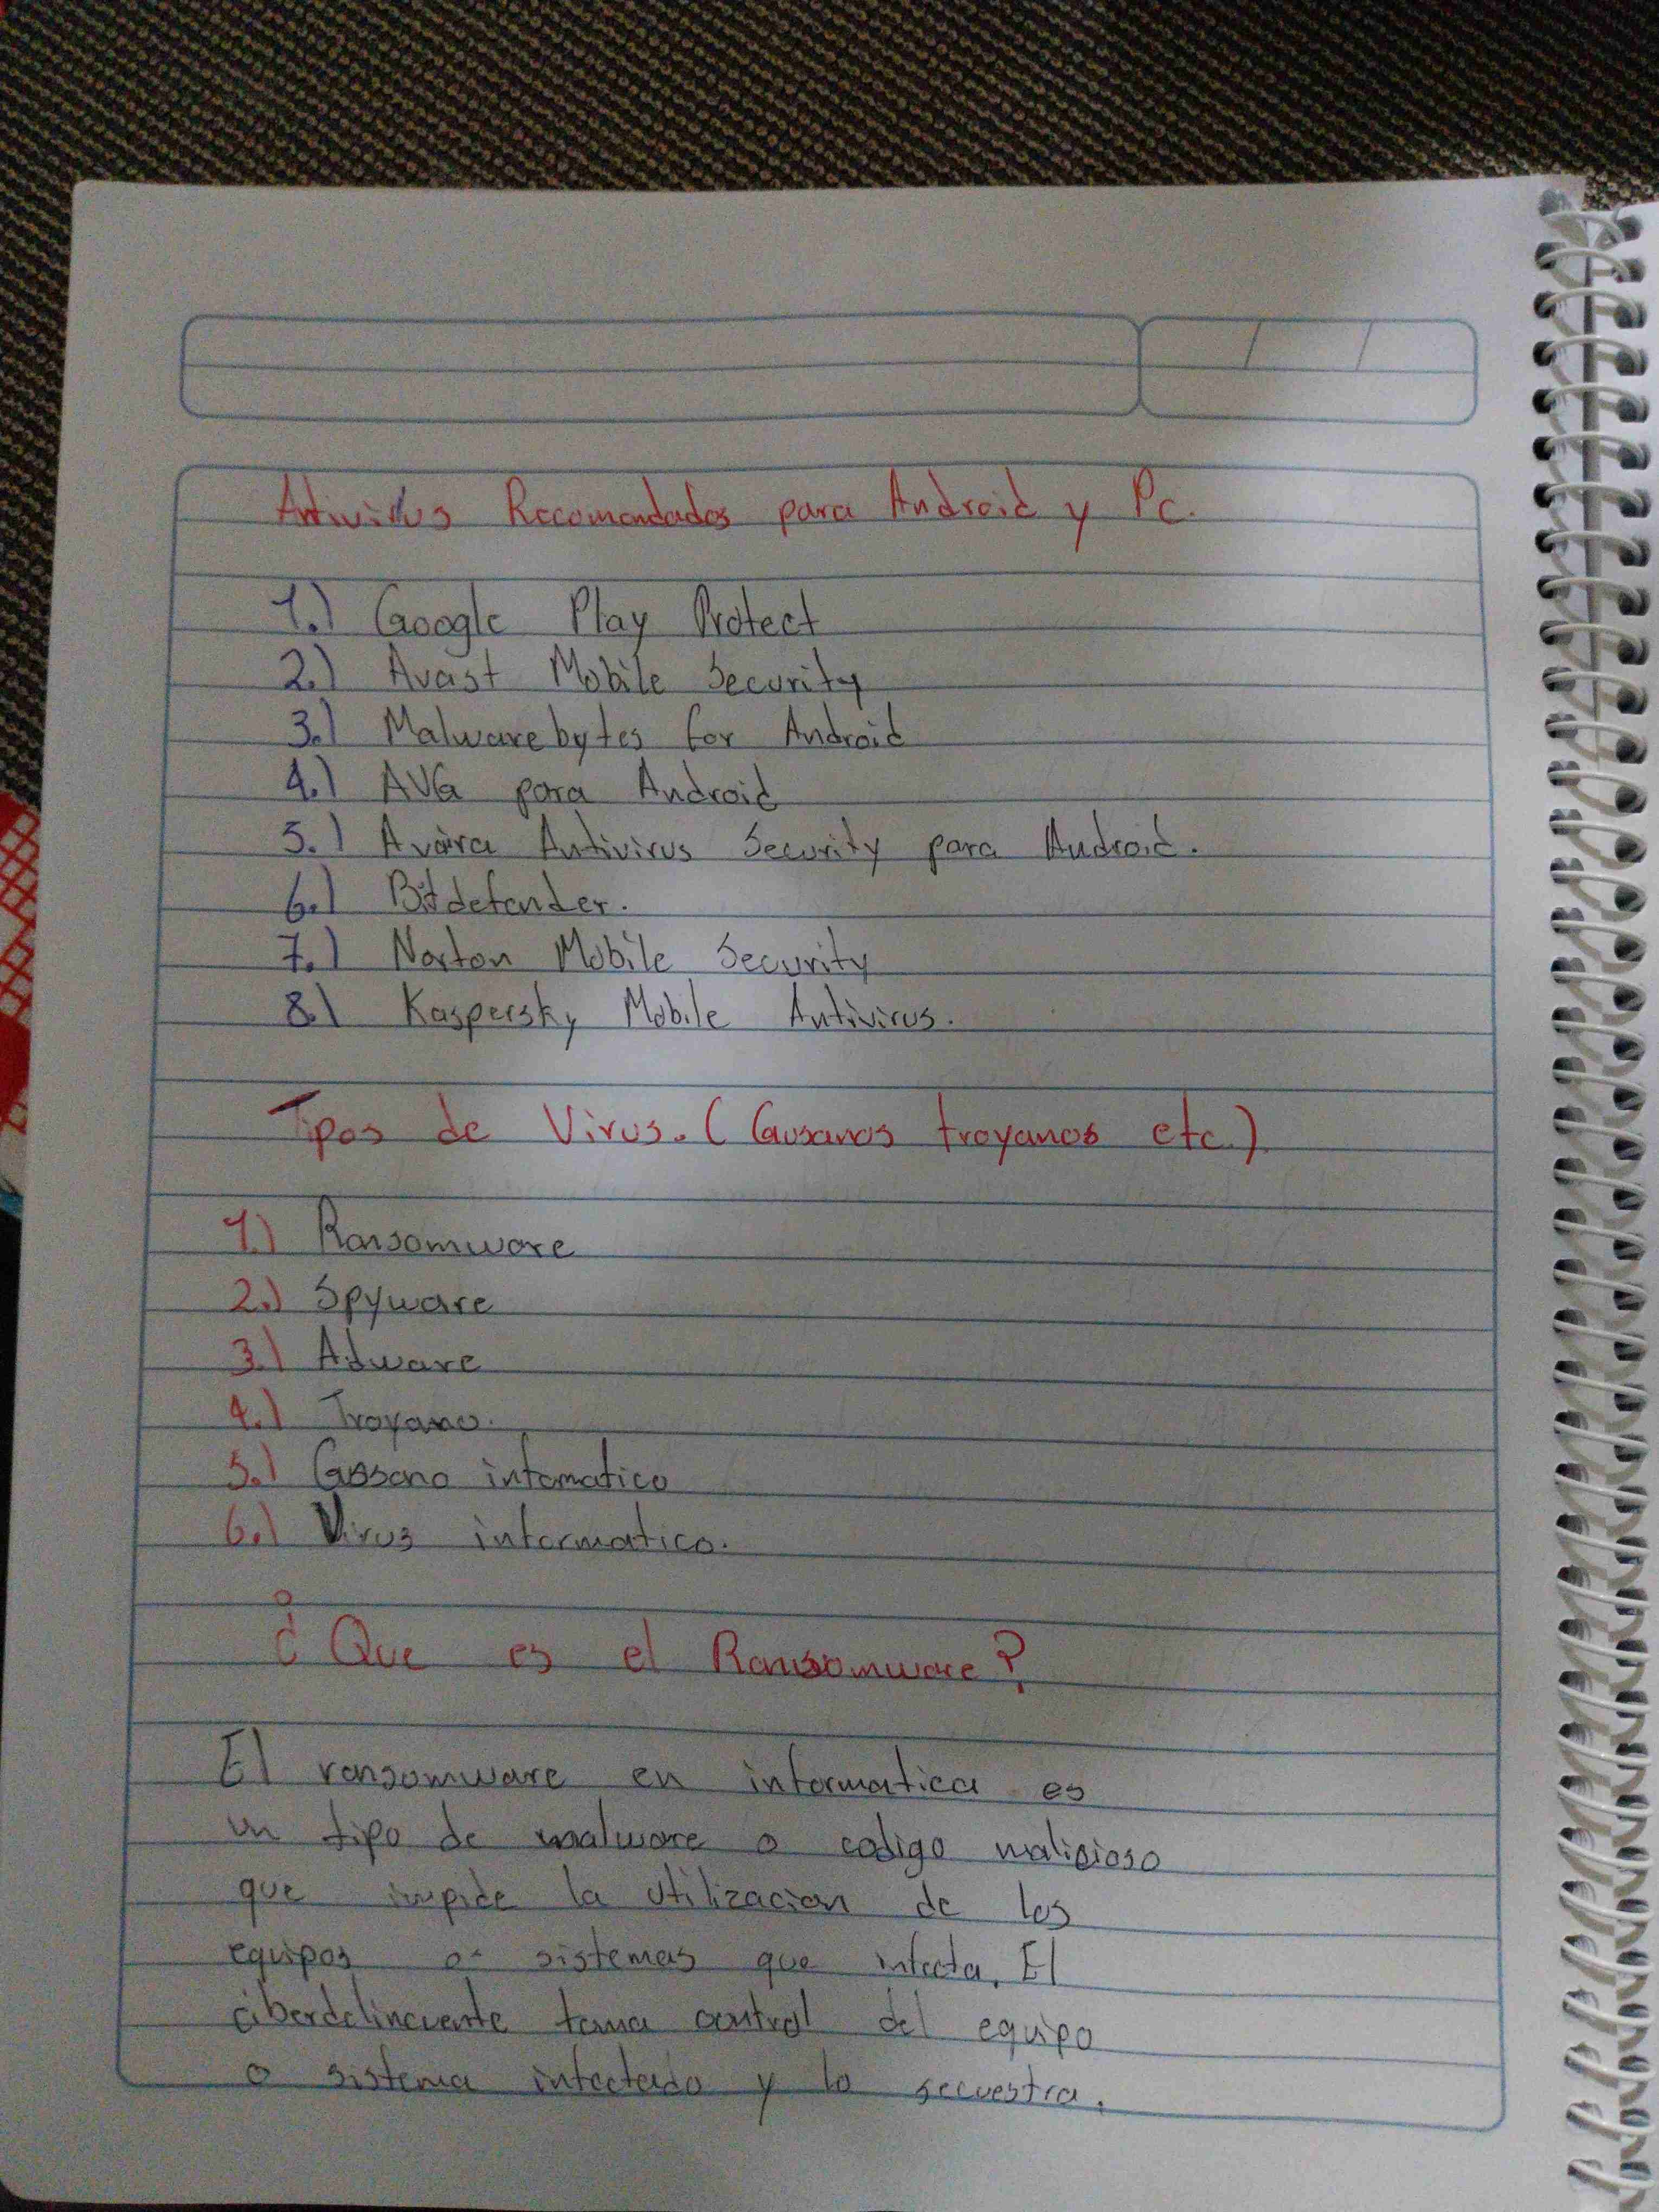 Antivirus Recomendados para Android y Pc.
1.) Google Play Protect
2.) Avast Mobile Security
3.) Malwarebytes for Android
4.) AVG para Android
5.) Avaira Antivirus Security para Android.
6.) Bitdefender.
7.) Norton Mobile Security
8.) Kaspersky Mobile Antivirus.
Tipos de Virus. (Gusanos troyanos etc.)
1.) Ransomware
2.) Spyware
3.) Adware
4.) Troyano.
5.) Gussano infomatico
6.) Virus informatico.
¿Que es el Ransomware?
El ransomware en informatica es
un tipo de malware o codigo malicioso
que impide la utilizacion de los
equipos o sistemas que infecta. El
ciberdelincuente toma control del equipo
o sistema infectado y lo secuestra.